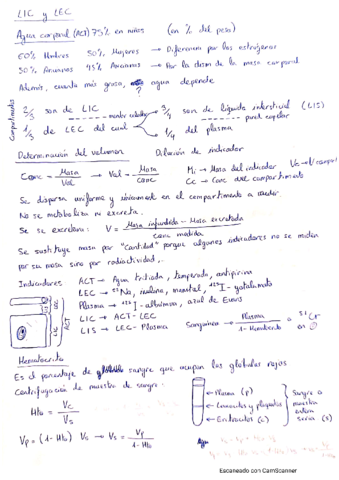 LIC y LEC
Agua corporal (ACT) 75% en niños (en % del peso)
60% Hombres 50% Mujeres → Diferencia por los estrógenos
50% Ancianos 45% Ancianas → Por la dism de la masa corporal
Además, cuanta más grasa, agua depende
?
Compartimentos
2/3 son de LIC 3/4 son de líquido intersticial (LIS)
membr celular pared capilar
1/3 de LEC del cual 1/4 del plasma
Determinación del volumen Dilución de indicador
Conc = Masa/Vol → Vol = Masa/Conc Mi → Masa del indicador
Cc → Conc del compartimento
Se dispersa uniforme y únicamente en el compartimento a medir.
No se metaboliza ni excreta.
Se se excretara: V = Masa infundida - Masa excretada / conc medida
Se sustituye masa por "Cantidad" porque algunos indicadores no se miden
por su masa sino por radiactividad.
Indicadores ACT → Agua tritiada, antipirina
LEC → Na, inulina, manitol, I-yotalamato
Plasma → I-albúmina, azul de Evans
LIC → ACT-LEC
LIS → LEC-Plasma Sanguíneo → Plasma / 1-Hematocrito o 51Cr
LIS
LIC
LEC
ACT
Hematocrito
Es el porcentaje de sangre que ocupan los glóbulos rojos
Centrifugación de muestra de sangre:
Hto = Vc/Vs
Plasma (P)
Leucocitos y plaquetas
Eritrocitos (C)
Sangre o muestra entera
(S)
Vp = (1-Hto) Vs → Vs = Vp / 1-Hto
Escaneado con CamScanner